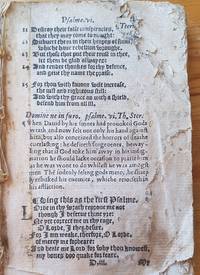 Psalme. vi.
Ster.
11 Destroy their false conspiracies,
that they may come to nought:
Subvert them in their heapes of sinne,
which have rebellion wrought.
12 But those that put their trust in thee,
let them be glad alwayes:
And render thankes for thy defence,
and geve thy name the prayse.
13 For thou with favour wilt increase,
the just and righteous still:
And with thy grace as with a shield,
defend him from all ill.
Domine ne in furo. psalme. vi. Th. Ster.
When David by his sinnes had provoked Gods
wrath, and now felt not only his hand against
him, but also conceived the horrors of death
everlasting: he desireth forgevenes, bewayling
that if God toke him away in his indignation
he should lacke occasion to prayse him
as he was wont to do whilest he was amongst
men. Then sodenly feling gods mercy, he sharply
rebuketh his enemies, which rejoysed in his
affliction.
Sing this as the first Psalme.
Lord in thy wrath reprove me not
though I deserve thine yre:
Ne yet correct me in thy rage,
O Lorde, I thee desire.
2 For I am weake, therefore, O Lorde,
of mercy me forbeare:
And heale me Lord for why thou knowest,
my bones doo quake for feare.